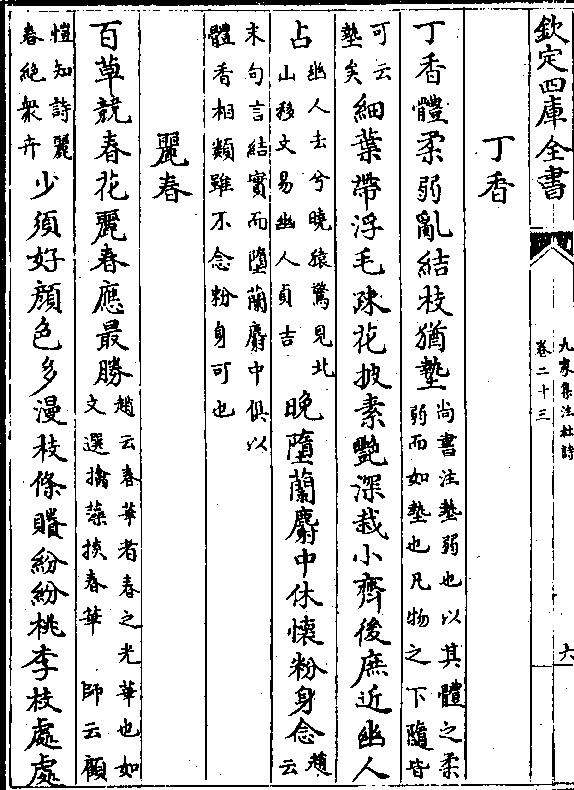 欽定四庫全書
九家集注杜詩
卷二十三
六
丁香
丁香體柔弱亂結枝猶墊
尚書注墊弱也以其體之柔
弱而如墊也凡物之下墮皆
可云
墊矣
細葉帶浮毛疎花披素艷深栽小齊後庶近幽人
占
幽人去兮曉猿驚見北
山移文易幽人貞吉
晚墮蘭麝中休懷粉身念
趙
云
末句言結實而墮蘭麝中俱以
體香相類雖不念粉身可也
麗春
百草競春花麗春應最勝
趙云春華者春之光華也如
文選摛藻掞春華 師云顧
愷知詩麗
春絶衆卉
少須好顔色多漫枝條賸紛紛桃李枝處處